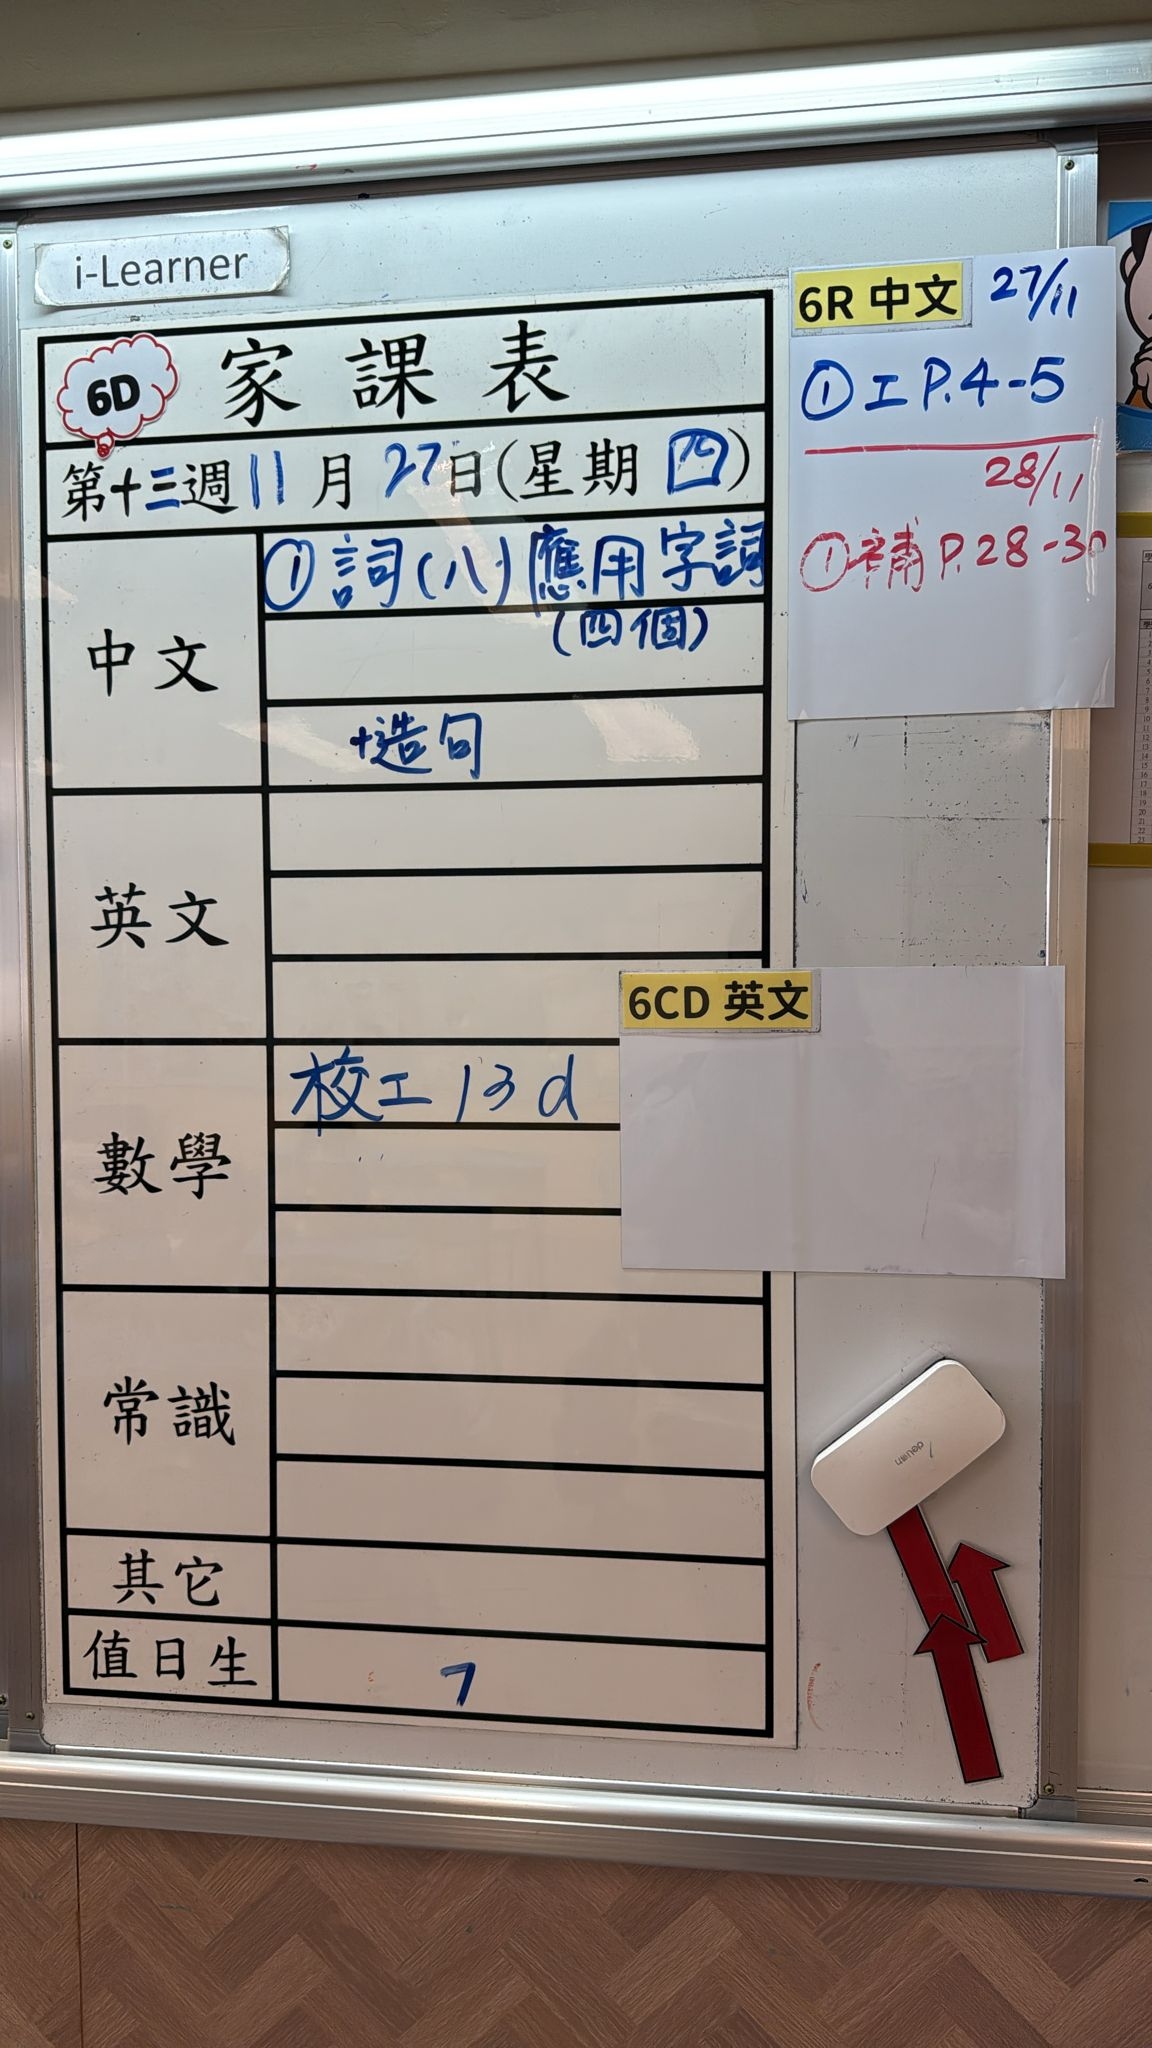 i-Learner
6D 家課表
第十三週11月27日(星期四)
中文
① 詞(八) 應用字詞
(四個)
+造句
英文
數學
校工 13d
常識
其它
值日生
7
6R 中文 27/11
① 工 P.4-5
28/11
① 補 P.28-30
6CD 英文
deli